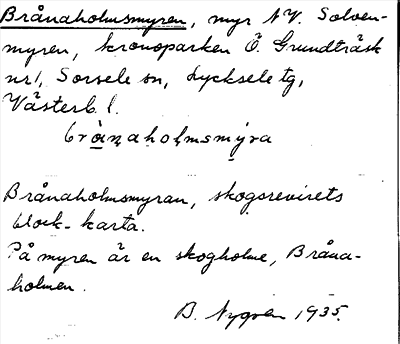 Brånaholmsmyren, myr N.V. Solven-
myren, kronoparken Ö. Grundträsk
nr 1, Sorsele sn, Lycksele tg,
Västerb. l.
brànaholmsmýra
Brånaholmsmyran, skogsrevirets
block-karta.
På myren är en skogholme, Bråna-
holmen.
B. Nygren 1935.